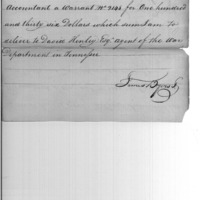 Accountant a Warrant No. 2144 for One hundred
and thirty six Dollars which sum I am to
deliver to David Henley Esqr. Agent of the War
Department in Tennessee